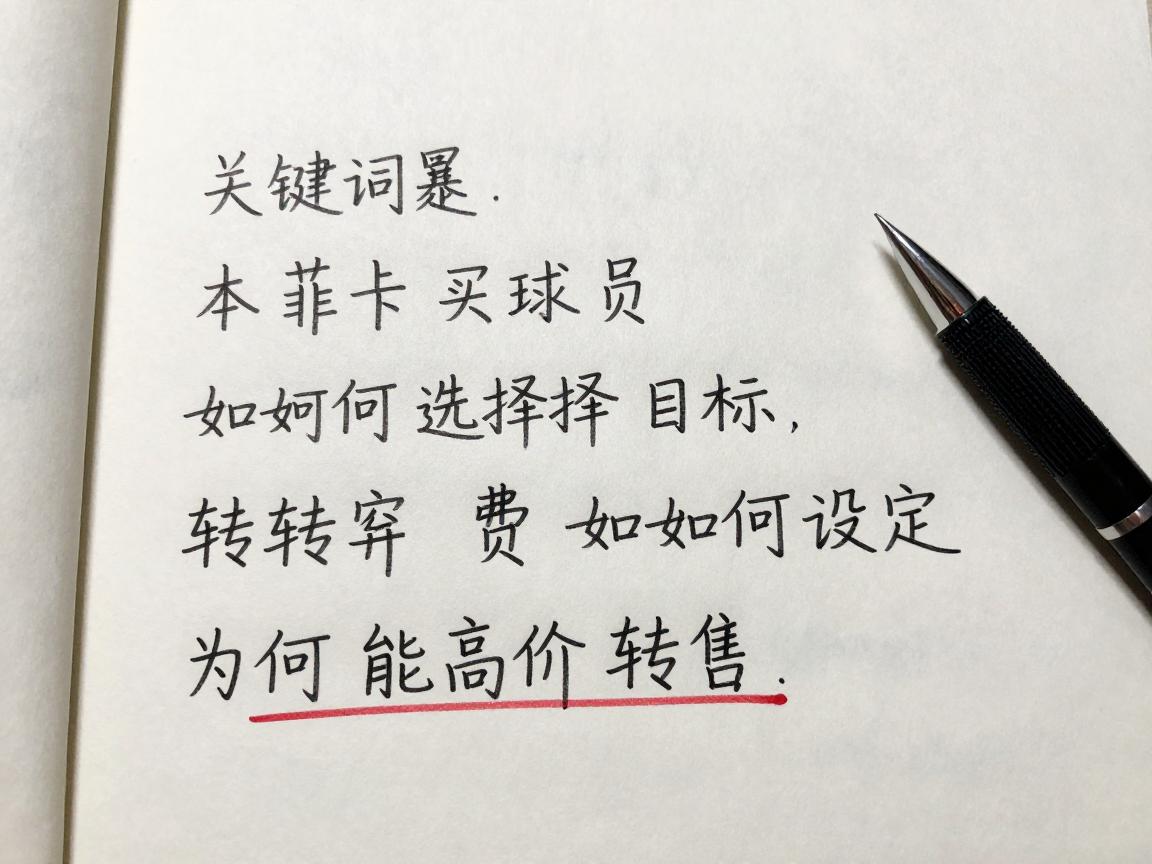 关键词暴.
本菲卡买球员
如如何选择择目标,
转转弃 费 如如何设定
为何能高价转售.